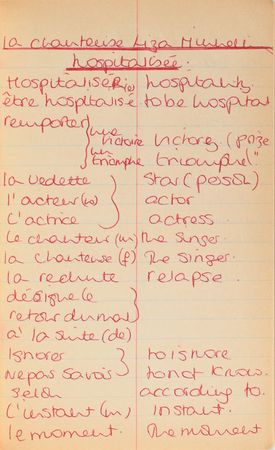 la chanteuse Liza Minnelli
hospitalisée.
Hospitaliser(e) hospitality
être hospitalisé to be hospital
remporter une victoire victory (prize
un triomphe triomphe"
la vedette Star (person)
l'acteur (m) actor
L'actrice actress
Le chanteur (m) The singer.
la chanteuse (f) The singer.
la rechute relapse.
désigne le
retour du mal
à la suite (de)
ignorer to ignore
ne pas savoir to not know.
Selon according to.
L'instant (m) instant.
le moment. The moment